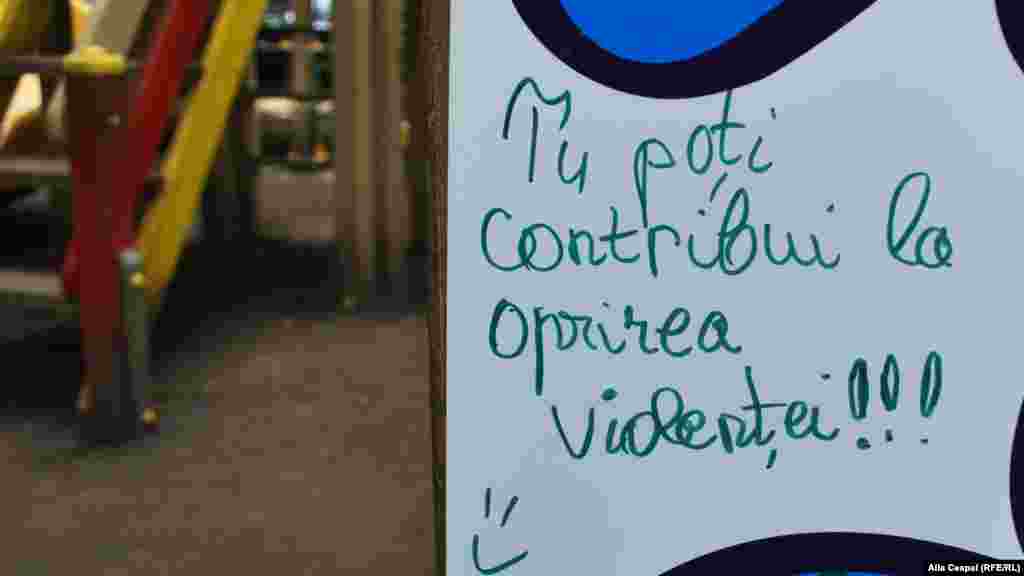 Tu poți
contribui la
oprirea
violenței!!!
Alla Ceapai (RFE/RL)